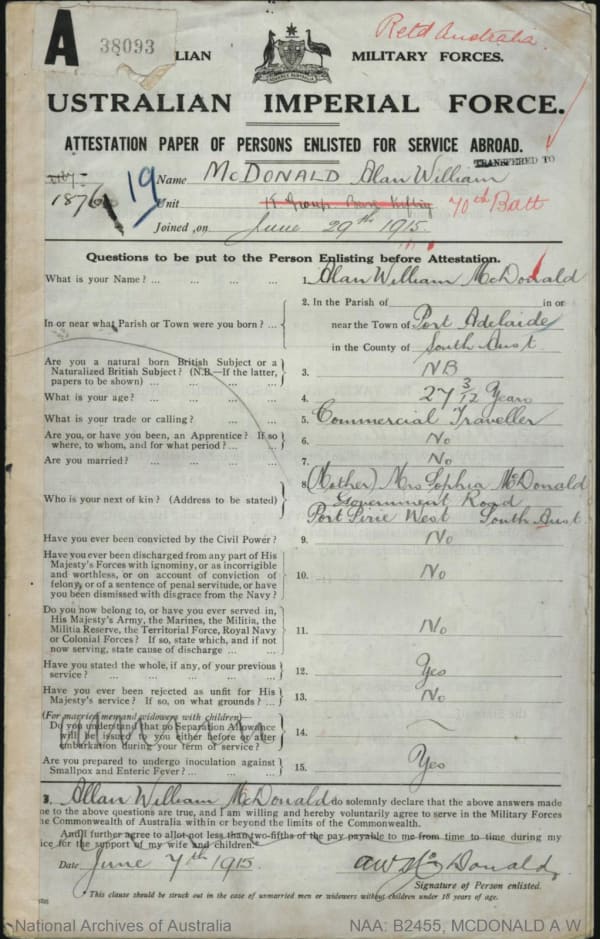 A
38093
LIAN MILITARY FORCES.
Retd Australia.
USTRALIAN IMPERIAL FORCE.
ATTESTATION PAPER OF PERSONS ENLISTED FOR SERVICE ABROAD.
TRANSFERED TO
19 Name McDONALD Alan William
1876 Unit 70th Batt
Joined on June 29th 1915.
Questions to be put to the Person Enlisting before Attestation.
What is your Name? ... 1. Alan William McDonald
2. In the Parish of in or
In or near what Parish or Town were you born? ... near the Town of Port Adelaide
in the County of South Aust
Are you a natural born British Subject or a
Naturalized British Subject? (N.B.—If the latter, 3. NB
papers to be shown)
What is your age? 4. 27 3/12 Years
What is your trade or calling? 5. Commercial Traveller
Are you, or have you been, an Apprentice? If so 6. No
where, to whom, and for what period?
Are you married? 7. No
8 (Mother) Mrs Sophia McDonald
Who is your next of kin? (Address to be stated) Government Road
Port Pirie West South Aust.
Have you ever been convicted by the Civil Power? 9. No
Have you ever been discharged from any part of His
Majesty's Forces with ignominy, or as incorrigible
and worthless, or on account of conviction of 10. No
felony, or of a sentence of penal servitude, or have
you been dismissed with disgrace from the Navy?
Do you now belong to, or have you ever served in,
His Majesty's Army, the Marines, the Militia, the
Militia Reserve, the Territorial Force, Royal Navy 11. No
or Colonial Forces? If so, state which, and if not
now serving, state cause of discharge
Have you stated the whole, if any, of your previous 12. Yes
service?
Have you ever been rejected as unfit for His 13. No
Majesty's service? If so, on what grounds?
(For married men and widowers with children)—
Do you understand that no Separation Allowance
will be issued to you either before or after 14.
embarkation during your term of service?
Are you prepared to undergo inoculation against 15. Yes
Smallpox and Enteric Fever?
I, Allan William McDonald do solemnly declare that the above answers made
me to the above questions are true, and I am willing and hereby voluntarily agree to serve in the Military Forces
he Commonwealth of Australia within or beyond the limits of the Commonwealth.
And I further agree to allot not less than two-fifths of the pay payable to me from time to time during my
ice for the support of my wife and children.
Date June 7th 1915. AW McDonald
Signature of Person enlisted.
This clause should be struck out in the case of unmarried men or widowers without children under 18 years of age.
National Archives of Australia NAA: B2455, MCDONALD A W